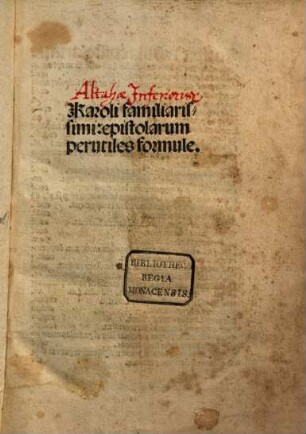 Altahæ Inferioris.
Karoli familiaris-
simi: epistolarum
perutiles formule.
BIBLIOTHECA
REGIA
MONACENSIS.